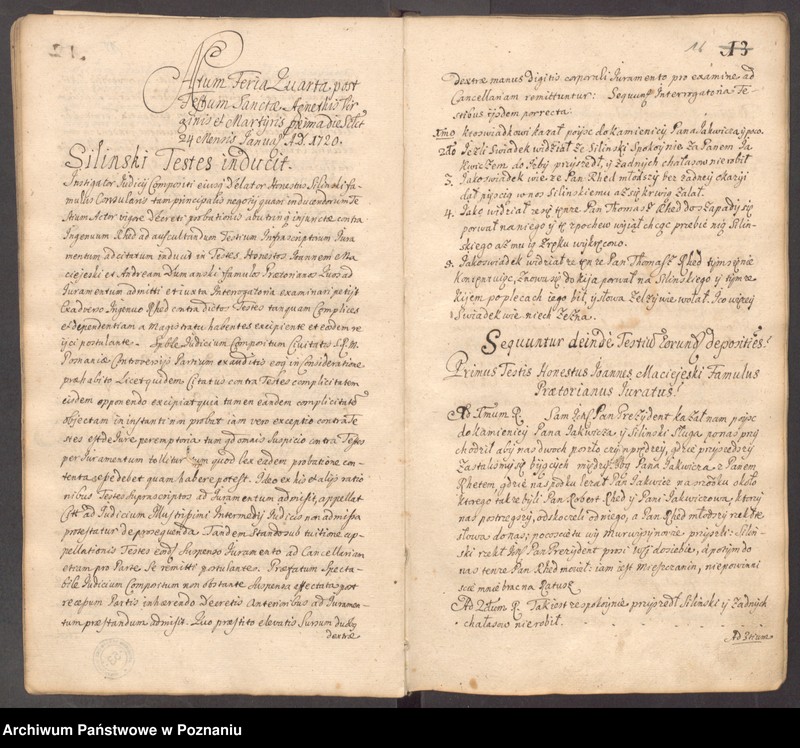 Actum Feria Quarta post
Festum Sanctæ Agnethis Vir
ginis et Martyris prima die Scilt
24 Mensis Januaȳ A.D. 1720.
Silinski Testes inducit.
Instigator Judicȳ Compositi eiusq̃ Delator Honestus Silinski fa-
mulus Consularis tam principalis negotȳ quam inducendorum Te
stium Actor vigore Decreti probationis
Ingenuum Rhed ad auscultandum Testium Infrascriptorum Jura
mentum adcitatum inducit in Testes, Honestos Joannem Ma
ciejeski et Andream Dumanski famulos Prætorianos Quos ad
Juramentum admitti et iuxta Interrogatoria examinari petijt
Exadverso Ingenuo Rhed contra dictos Testes tanquam Complices
et dependentiam a Magistratu habentes excipiente et eosdem re
ijci postulante. Spble Judicium Compositum Civitatis
Posnaniæ Controversijs Partium exauditis eoq̃ in Consideratione
præhabito Licet quidem Citatus contra Testes complicitatem
eisdem opponendo excipiat quia tamen eandem complicitatem
objectam in instanti non probat iam vero exceptio contra Te
stes est de Jure peremptoria tum quod omnis suspicio contra Testes
per Juramentum tollitur tum quod lex eadem probatione con-
tenta se debet quam habere potest. Ideo ex his et alijs ratio
nibus Testes supra scriptos ad Juramentum admisit, appellat
Cttt ad Judicium Illustrissimi Intermedȳ Judicis non admissa
protestatur de prosequenda. Tandem Stando sub tuitione ap-
pellationis Testes eosdē Suspenso Juramento ad Cancellariam
etram pro Parte Se remitti postulantes. Præfatum Specta-
bile Judicium Compositum non obstante Suspensa effectata post
receptum Partis inhærendo Decretis Anterioribus ad Juramen-
tum præstandum admisit. Quo præstito elevatis Sursum duobȳ
dextræ
16 13
dextræ manus Digitis corporali Juramento, pro examine ad
Cancellariam remittuntur: Sequunt̃ Interrogatoria Te-
stibus ijsdem porrecta.
1mo kto swiadkowi kazał pojsc do kamienicy Pana Jakwicza, y poco.
2do Jezli Swiadek widział ze Silinski Spokojnie za Panem Ja
kwiczem do Izby przyszedł, y zadnych chałasow nie robił
3. Jako swiadek wie ze Pan Rhed młodszy bez zadney okazyi
dał pięscią w nos Silinskiemu asz się krwią zalał.
4. Jako widział ze się tenze Pan Thomasz Rhed do szapady się
porwał na niego y tę z pochew wyiął chcąc przebic nią Silin-
skiego asz mu ią z ręku wykręcono.
5. Jako swiadek widział ze tenze Pan Thomasz Rhed tym się nie
kontentuiąc, znowu się do kija porwał na Silinskiego y tym ze
kijem po plecach iego bił, y słowa zelzywie wołał. Ico więcey
Swiadek wie niech zezna.
Sequuntur deinde Testiū eorund̃ depositiōēs.
Primus Testis Honestus Joannes Maciejeski Famulus
Prætorianus Juratus.
Ad Imum R. Sam Pan Prezydent kazał nam pojsc
do kamienicy Pana Jakwicza y Silinski Sługa po nas przy
chodził aby nas dwoch poszło czym prędzey, gdzie przyszedszy
zastalismy się biiących między Pana Jakwicza z Panem
Rhetem, gdzie naspodku lezał Pan Jakwicz na srodku około
ktorego takze byli Pan Robert Rhed y Pani Jakwiczowa, ktorzy
nas postregszy, odskoczeli od niego, a Pan Rhed młodszy rzekł te
słowa do nas; poco scie tu wy przyszli: Silin-
ski rzekł Pan Prezydent prosi do siebie, a potym do
nas tenze Pan Rhed mowił: iam iest Mieszczanin, niepowinni
scie mnie brac na Ratusz
Ad 2dum R. Tak iest ze spokojnie przyszedł Silinski y zadnych
chałasow nie robił.
Ad 3tium
Archiwum Państwowe w Poznaniu